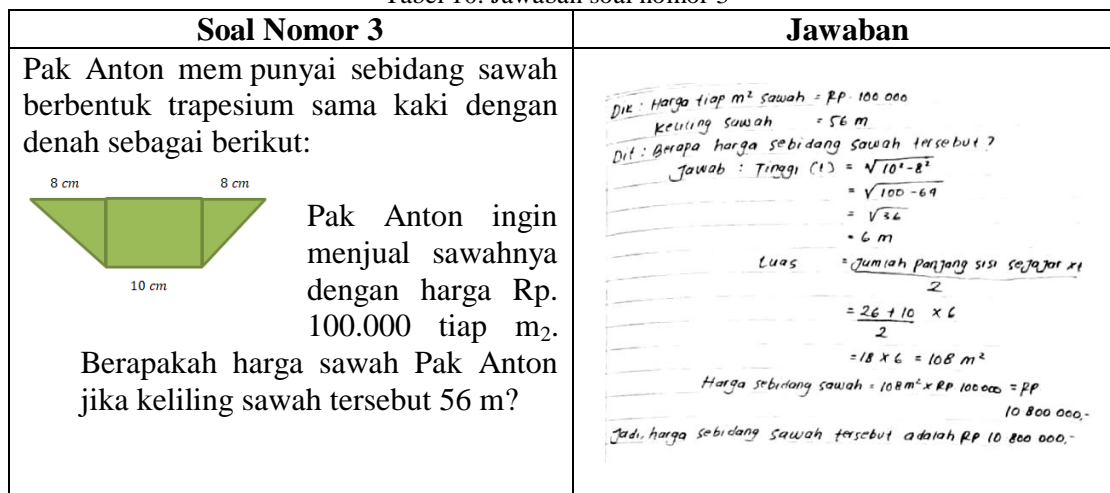 Tabel 10. Jawaban soal nomor 3
Soal Nomor 3
Pak Anton mem punyai sebidang sawah
berbentuk trapesium sama kaki dengan
denah sebagai berikut:
8 cm
8 cm
10 cm
Pak Anton ingin
menjual sawahnya
dengan harga Rp.
100.000 tiap m₂.
Berapakah harga sawah Pak Anton
jika keliling sawah tersebut 56 m?
Jawaban
Dik : Harga tiap m² sawah = RP. 100 000
Keliling sawah = 56 m
Dit : Berapa harga sebidang sawah tersebut ?
Jawab : Tinggi (t) = √10²-8²
= √100-64
= √36
= 6 m
Luas = Jumlah panjang sisi sejajar xt
2
= 26 + 10 x 6
2
= 18 x 6 = 108 m²
Harga sebidang sawah = 108 m² x RP 100 000 = RP
10 800 000,-
Jadi, harga sebidang sawah tersebut adalah RP 10 800 000,-